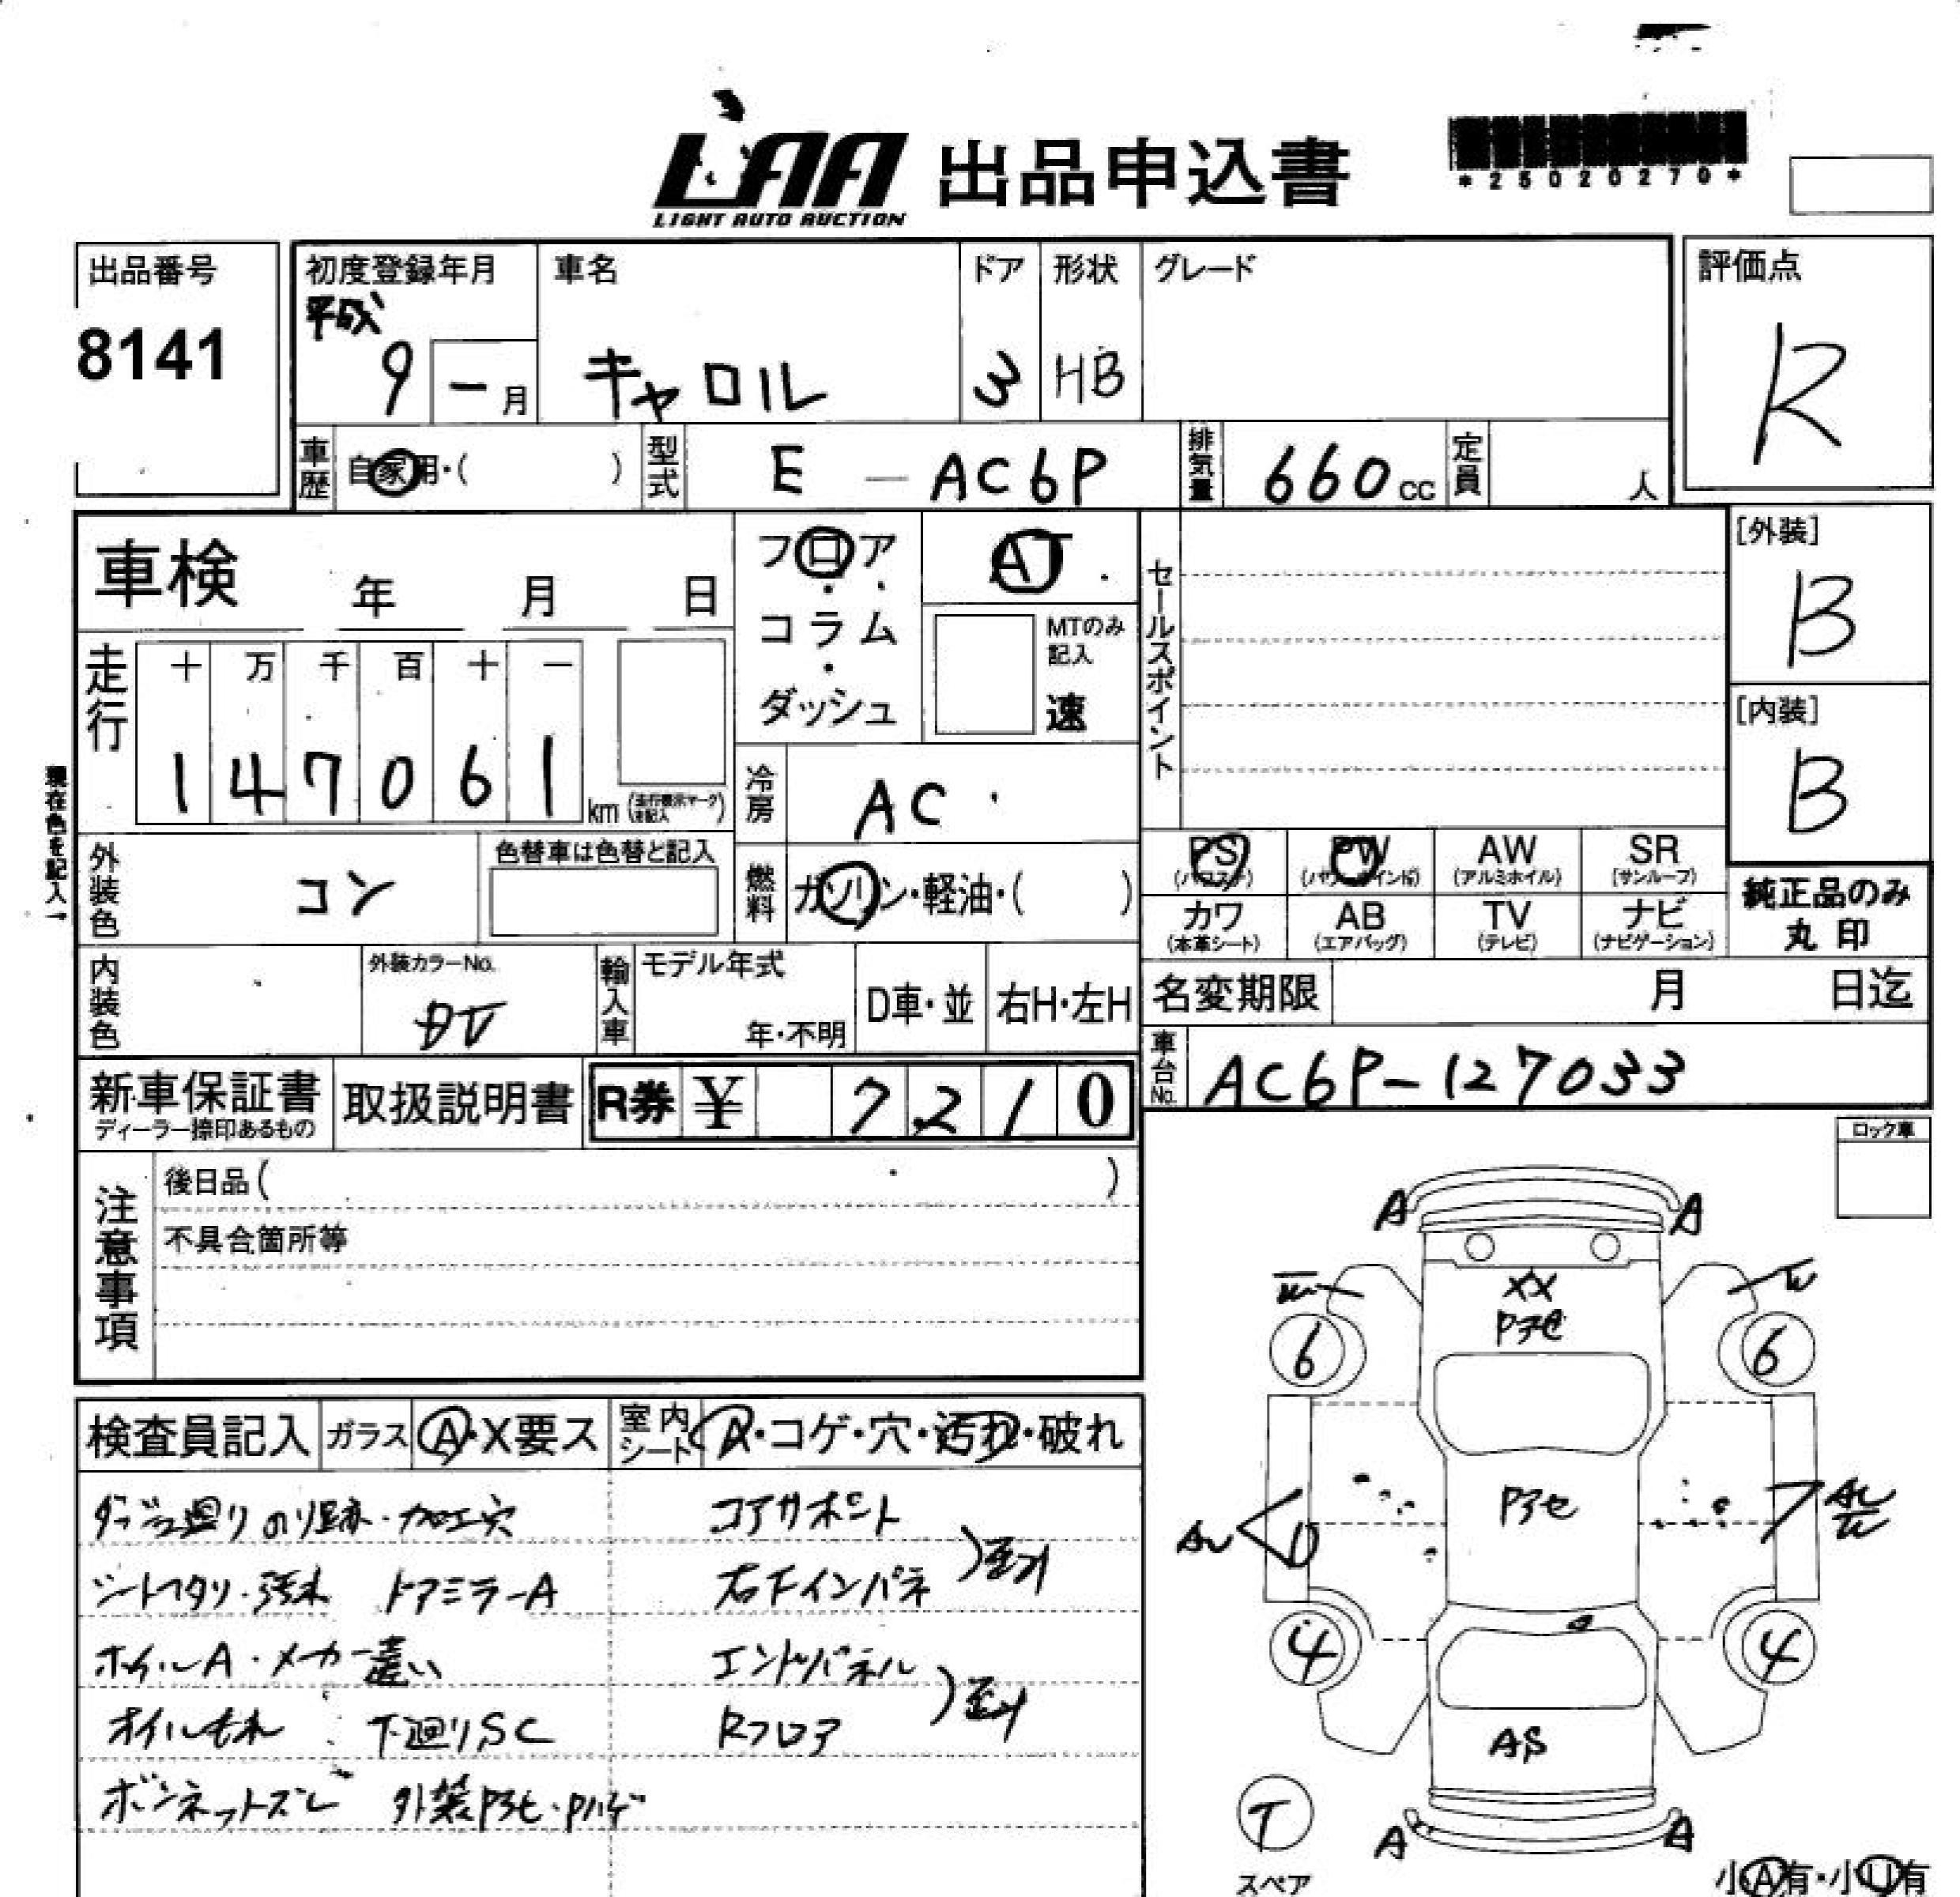 LAA 出品申込書
LIGHT AUTO AUCTION
*25020270*
出品番号
8141
初度登録年月
平成
9 - 月
車名
キャロル
ドア
3
形状
HB
グレード
評価点
R
車歴 自家用・( )
型式 E - AC6P
排気量 660 cc
定員 人
車検 年 月 日
フロア・コラム・ダッシュ
AT
MTのみ記入
速
セールスポイント
[外装]
B
[内装]
B
走行
十 万 千 百 十 一
1 4 7 0 6 1 km
冷房 AC
現在色を記入→
外装色 コン
色替車は色替と記入
燃料 ガソリン・軽油・( )
PS (パワステ)
PW (パワーウインドゥ)
AW (アルミホイル)
SR (サンルーフ)
カワ (本革シート)
AB (エアバッグ)
TV (テレビ)
ナビ (ナビゲーション)
純正品のみ
丸印
内装色
外装カラーNo.
輸入車
モデル年式
年・不明
D車・並
右H・左H
名変期限 月 日迄
車台No. AC6P-127033
新車保証書
ディーラー捺印あるもの
取扱説明書
R券 ¥ 7210
注意事項
後日品( )
不具合箇所等
ロック車
検査員記入
ガラス A・X要ス
室内シート A・コゲ・穴・汚れ・破れ
ダッシュ廻りのり跡・加工穴
コアサポート
シートヘタリ・汚れ ドアミラーA
右下インパネ
ホイルA・メーカー違い
エンドパネル
オイルもれ 下廻りSC
Rフロア
ボンネットズレ 外装Pアセ・Pハゲ
A A
XX
Pアセ
6 6
Pアセ
D
4 4
AS
A A
T
スペア
小A有・小U有